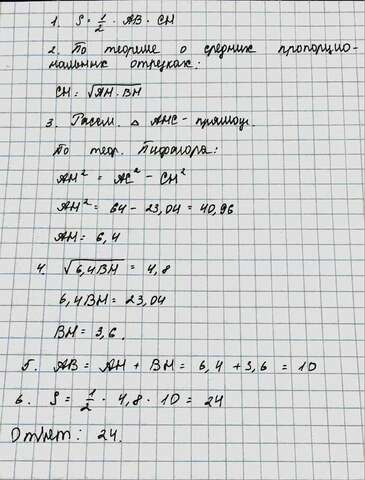 1. S = 1/2 · AB · CH
2. По теореме о средних пропорцио-
нальных отрезках:
CH = √(AH · BH)
3. Рассм. △ AHC - прямоуг.
По теор. Пифагора:
AH² = AC² - CH²
AH² = 64 - 23,04 = 40,96
AH = 6,4
4. √(6,4BH) = 4,8
6,4BH = 23,04
BH = 3,6.
5. AB = AH + BH = 6,4 + 3,6 = 10
6. S = 1/2 · 4,8 · 10 = 24
Ответ: 24.